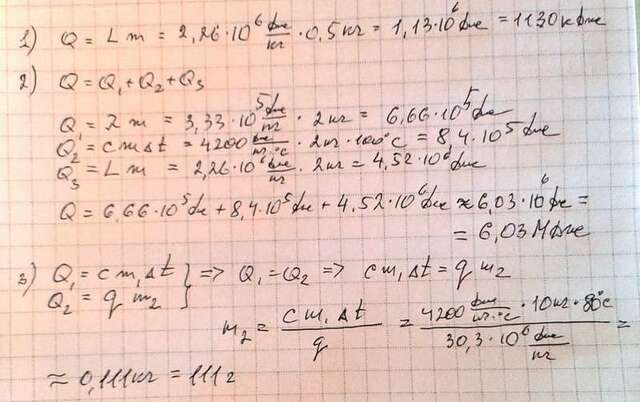 1) Q = Lm = 2,26·10⁶ Дж/кг · 0,5кг = 1,13·10⁶ Дж = 1130 кДж
2) Q = Q₁+Q₂+Q₃
Q₁ = λm = 3,33·10⁵ Дж/кг · 2кг = 6,66·10⁵ Дж
Q₂ = cmΔt = 4200 Дж/кг·°C · 2кг·100°C = 8,4·10⁵ Дж
Q₃ = Lm = 2,26·10⁶ Дж/кг · 2кг = 4,52·10⁶ Дж
Q = 6,66·10⁵ Дж + 8,4·10⁵ Дж + 4,52·10⁶ Дж ≈ 6,03·10⁶ Дж =
= 6,03 МДж
3) Q₁ = cm₁Δt } => Q₁=Q₂ => cm₁Δt = qm₂
Q₂ = qm₂
m₂ = cm₁Δt/q = 4200 Дж/кг·°C · 10кг·80°C / 30,3·10⁶ Дж/кг =
≈ 0,111кг = 111г